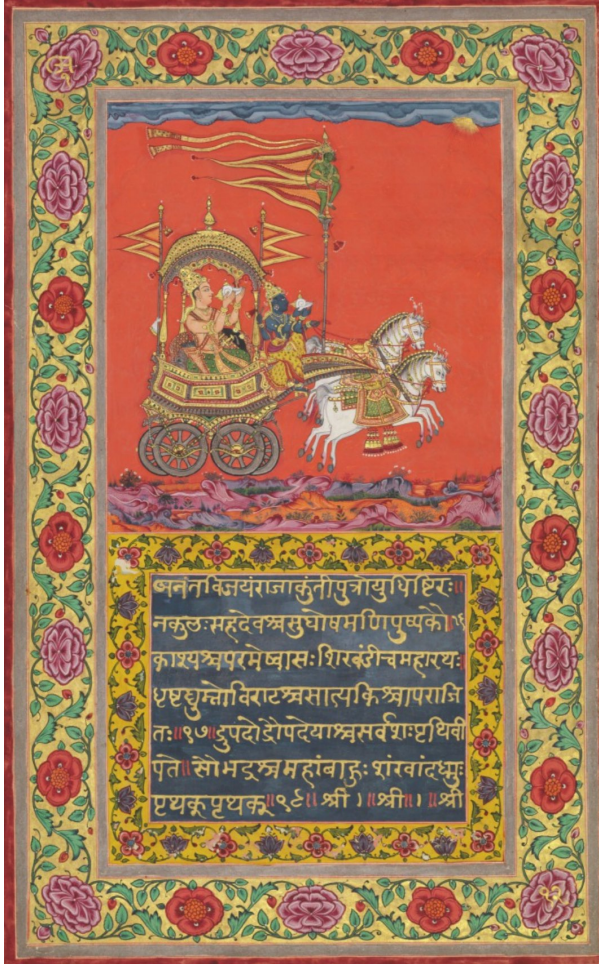 अनंतविजयंराजाकुंतीपुत्रोयुधिष्टिरः॥
नकुलःसहदेवश्चसुघोषमणिपुष्पकौ॥१६
काश्यश्चपरमेष्वासःशिखंडीचमहारथः
धृष्टद्युम्नोविराटश्चसात्यकिश्चापराजि
तः॥१७॥द्रुपदोद्रौपदेयाश्चसर्वशःपृथिवी
पते॥सौभद्रश्चमहांबाहुःशंखांदध्मुः
पृथक्पृथक्॥१८॥श्री।॥श्री॥।॥श्री